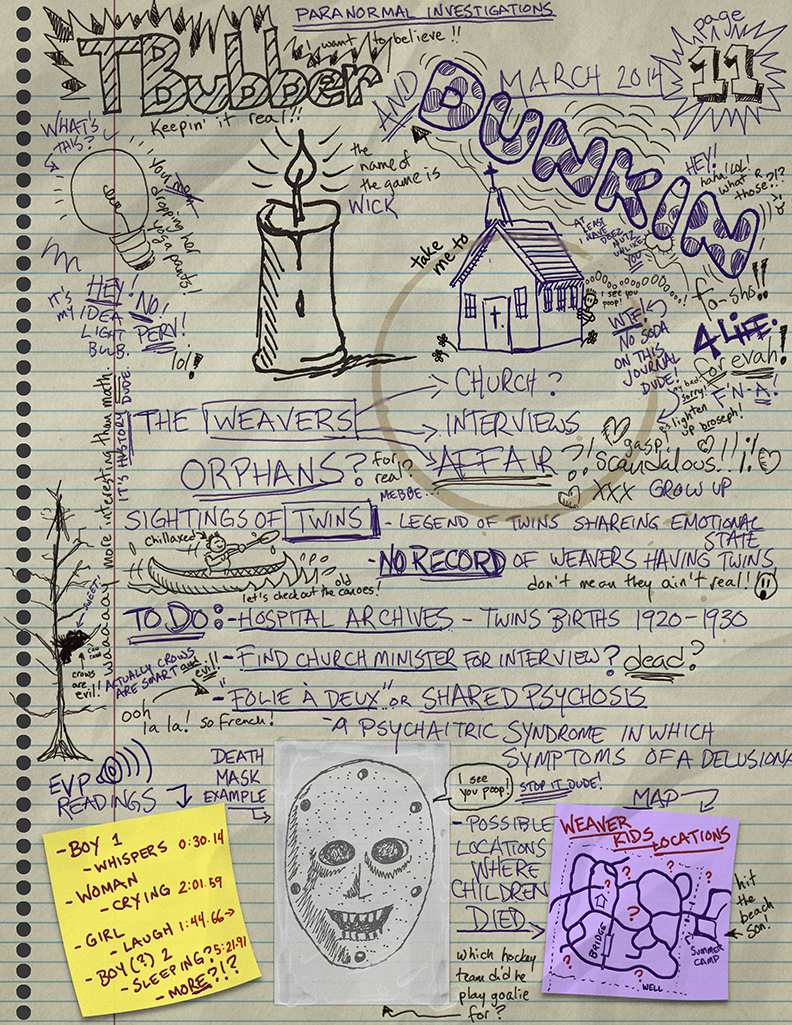 PARANORMAL INVESTIGATIONS
I want to believe!!
TBubber
Keepin' it real!!
AND
DUNKIN
MARCH 2014
page
11
WHAT'S
THIS?
You mean
dropping her
yoga pants!
HEY!
IT'S
MY IDEA
LIGHT
BULB.
NO!
PERV!
lol!
the
name of
the game is
WICK
take
me to
AT
LEAST
I HAVE
DEEZ
NUTZ
UNLIKE
YOU
HEY!
haha! lol!
what R
those?!?
I see you
poop!
fo-sho!!
4 LIFE!
for evah!
F'N-A!
WTF!
NO SODA
ON THIS
JOURNAL
DUDE!
my bad.
sorry!
p.s. lighten
up broseph!
THE WEAVERS
CHURCH?
INTERVIEWS
AFFAIR?!
gasp!
scandalous..!!¡!
XXX GROW UP
ORPHANS?
for
real?
MEBBE...
waaaaay more interesting than math.
IT'S HISTORY DUDE.
SIGHTINGS OF TWINS - LEGEND OF TWINS SHAREING EMOTIONAL
STATE
chillaxed
let's check out the old canoes!
- NO RECORD OF WEAVERS HAVING TWINS
don't mean they ain't real!
TO DO: - HOSPITAL ARCHIVES - TWINS BIRTHS 1920-1930
- FIND CHURCH MINISTER FOR INTERVIEW? dead?
SWEET!
caw
caw
crows
are
evil!
ACTUALLY CROWS
ARE SMART and
evil!
- "FOLIE À DEUX" OR SHARED PSYCHOSIS
ooh
la la! so French!
- A PSYCHAITRIC SYNDROME IN WHICH
SYMPTOMS OF A DELUSIONA
EVP
READINGS
DEATH
MASK
EXAMPLE
I see
you poop!
STOP IT DUDE!
MAP
- BOY 1
- WHISPERS 0:30.14
- WOMAN
- CRYING 2:01.59
- GIRL
- LAUGH 1:44.66
- BOY(?) 2
- SLEEPING? 5:21.91
- MORE?!?
- POSSIBLE
LOCATIONS
WHERE
CHILDREN
DIED
which hockey
team did he
play goalie
for?
WEAVER
KIDS
LOCATIONS
?
?
?
?
?
?
?
BRIDGE
SUMMER
CAMP
WELL
hit
the
beach
son!